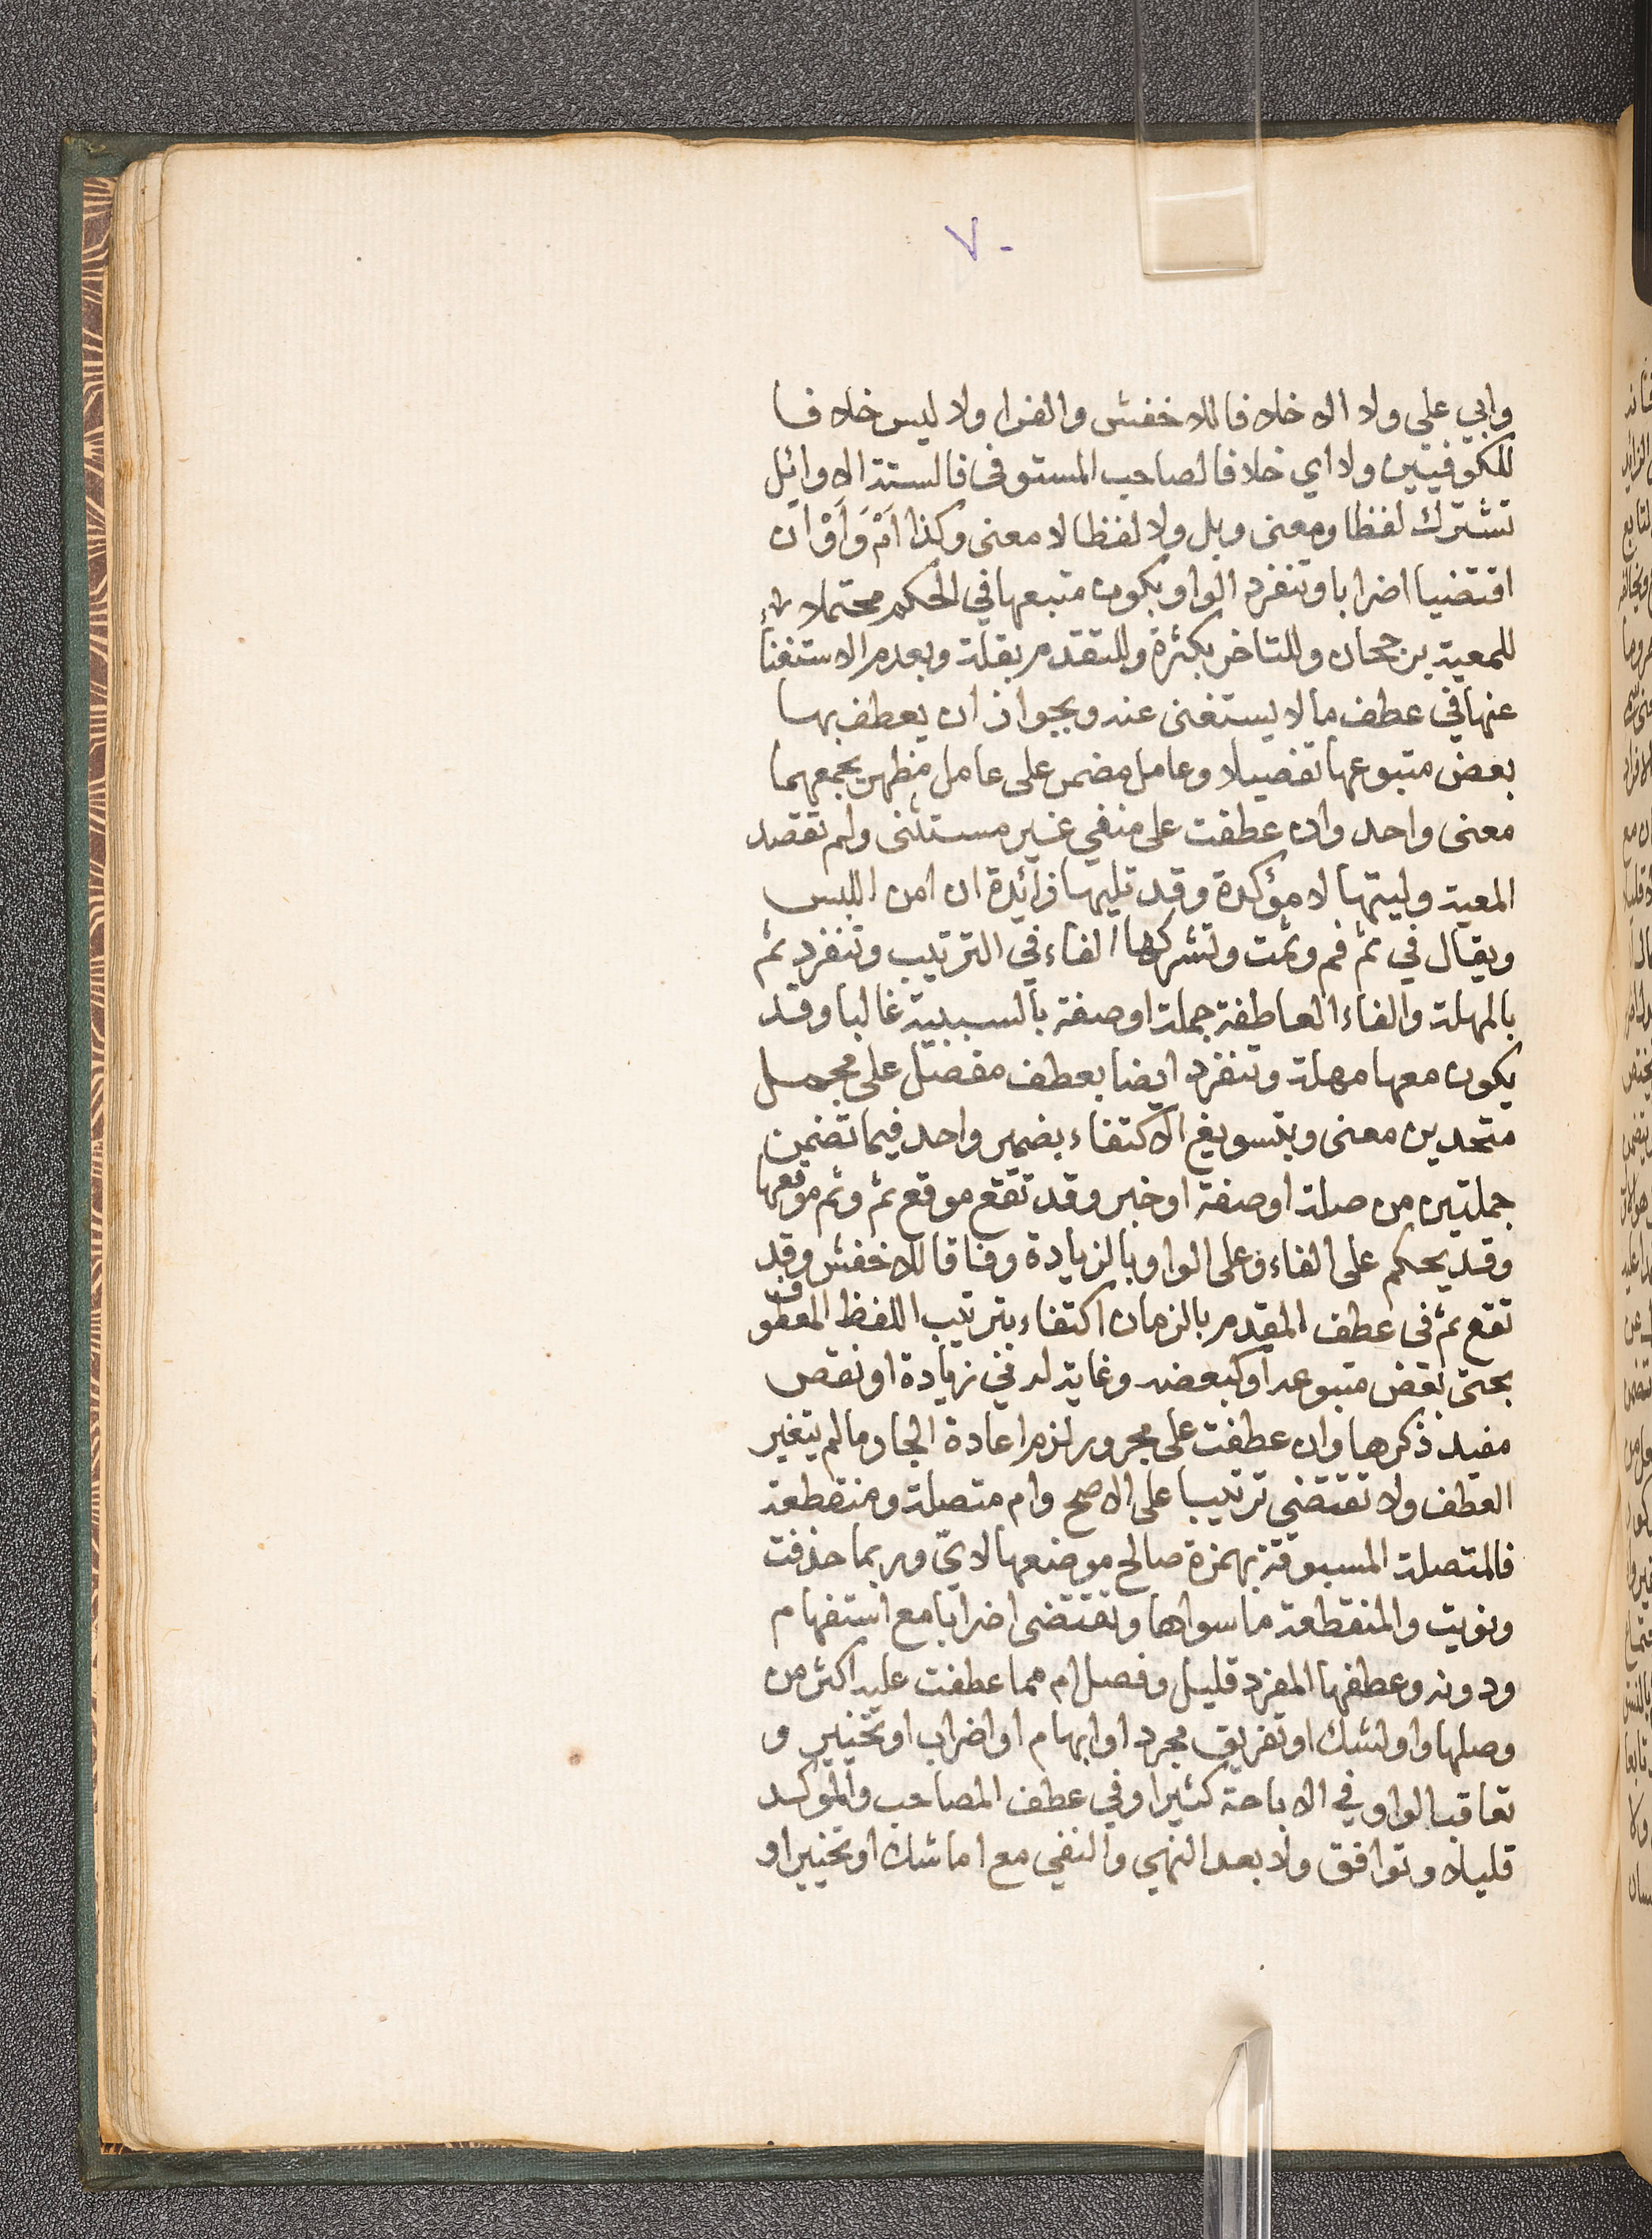 ٧٠
وابي علي ولا الا خلافا للاخفش والفرا ولا ليس خلافا
للكوفيين ولا اي خلافا لصاحب المستوفى فالستة الاوائل
تشترك لفظا ومعنى وبل ولا لفظا لا معنى وكذا اَمْ وَاَوْ ان
اقتضيا اضرابا وتنفرد الواو بكون متبعها في الحكم محتملا
للمعية برجحان وللتاخر بكثرة وللتقدم بقلة وبعدم الاستغنا
عنها في عطف ما لا يستغنى عنه وبجواز ان يعطف بها
بعض متبوعها تفضيلا وعامل مضمر على عامل مظهر يجمعهما
معنى واحد وان عطفت على منفي غير مستثنى ولم تقصد
المعية وليتها لا مؤكدة وقد تليها زائدة ان امن اللبس
ويقال في ثم فم وثمت وتشركها الفاء في الترتيب وتنفرد ثم
بالمهلة والفاء العاطفة جملة اوصفة بالسببية غالبا وقد
يكون معها مهلة وتنفرد ايضا بعطف مفصل على مجمل
متحدين معنى وبتسويغ الاكتفاء بضمير واحد فيما تضمن
جملتين من صلة اوصفة اوخبر وقد تقع موقع ثم وثم موقعها
وقد يحكم على الفاء وعلى الواو بالزيادة وفاقا للاخفش وقد
تقع ثم فى عطف المقدم بالزمان اكتفاء بترتيب اللفظ المعطوف
بحتى بعض متبوعه اوكبعضه وغاية له في زيادة اونقص
مفيد ذكرها وان عطفت على مجرور لزم اعادة الجار ما لم يتغير
العطف ولا تقتضي ترتيبا على الاصح وام متصلة ومنقطعة
فالمتصلة المسبوقة بهمزة صالح موضعها لايّ وربما حذفت
ونويت والمنقطعة ما سواها وتقتضى اضرابا مع استفهام
ودونه وعطفها المفرد قليل وفصل ام مما عطفت عليه اكثر من
وصلها واو لشك اوتفريق مجرد اوابهام اواضراب اوتخيير و
تعاقب الواو في الاباحة كثيرا وفي عطف المصاحب والموكد
قليلا وتوافق ولا بعد النهي والنفي مع اما شك اوتخيير او